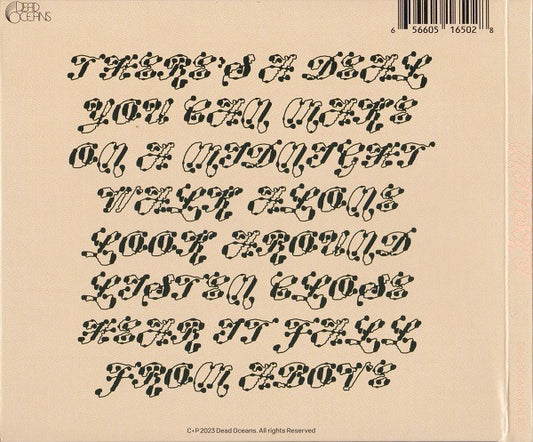 DEAD
OCEANS
6 56605 16502 8
THERE'S A DEAL
YOU CAN MAKE
ON A MIDNIGHT
WALK ALONE
LOOK AROUND
LISTEN CLOSE
HEAR IT FALL
FROM ABOVE
C+P 2023 Dead Oceans. All rights Reserved